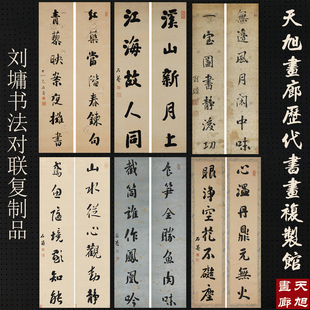 天旭畫廊歷代書畫複製館
天旭
畫廊
無邊風月閒中味
一室圖書靜後功
劉墉
溪山新月上
江海故人同
石菴
紅藥當階春鍊句
青藜映案夜攤書
心溫丹鼎元無火
眼淨空花不礙塵
石菴
食筍全勝魚肉味
截筒誰作鳳凰吟
石菴
山水從心觀動靜
鳶魚隨境識知能
石菴
刘墉书法对联复制品